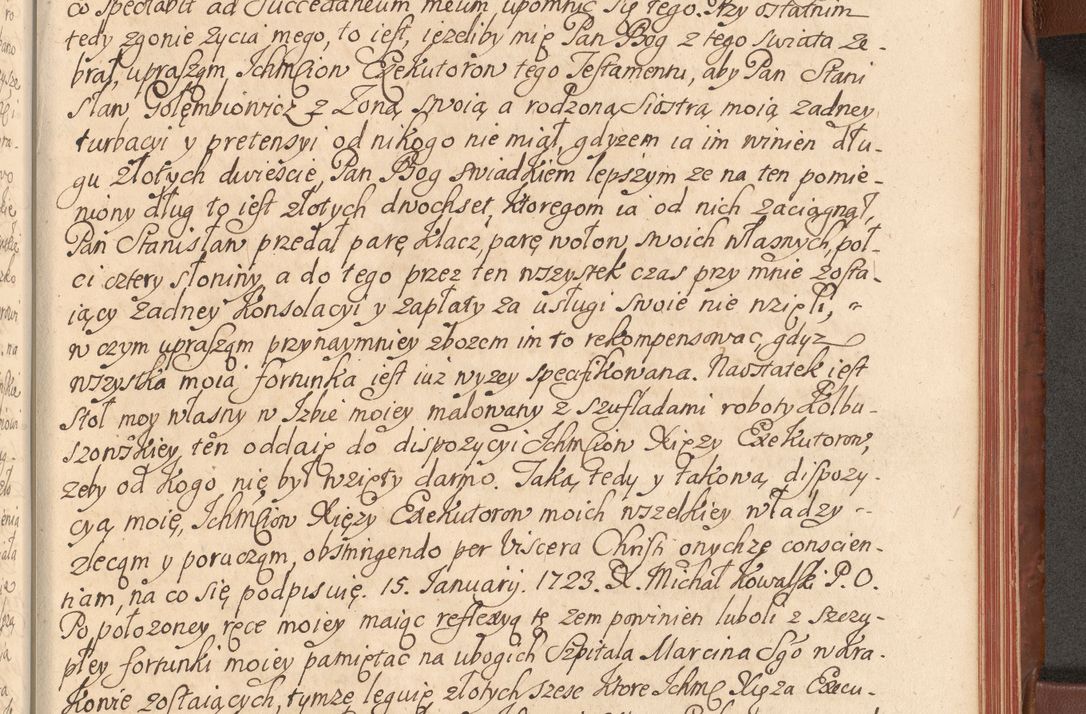 co spectabit ad Succedaneum meum upomnić się tego. Przy ostatnim
tedy zgonie życia mego, to iest, ieżeliby mię Pan Bog z tego swiata ze-
brał, upraszam, Ichmciow Exekutorow tego Testamentu, aby Pan Stani
sław Gołembiowicz z Zoną swoią a rodzoną siostrą moią żadney
turbacyi y pretensyi od nikogo nie miał, gdyżem ia im winien dłu-
gu złotych dwieście, Pan Bog swiadkiem lepszym że na ten pomie-
niony dług to iest złotych dwochset, ktoregom ia od nich zaciągnął,
Pan Stanisław przedał parę klacz, parę wołow swoich własnych, poł-
ci cztery słoniny, a do tego przez ten wszystek czas przy mnie zosta-
iący żadney konsolacyi y zapłaty za usługi swoie nie wzięli,
w czym upraszam przynaymniey zbożem im to rekompensować, gdyż
wszystka moia fortunka iest iuż wyżey specifikowana. Naostatek iest
stoł moy własny w Izbie moiey malowany z szufladami roboty Kolbu-
szowskiey, ten oddaię do dispozycyi Ichmciow Xięży Exekutorow,
żeby od kogo nie był wzięty darmo. Taką tedy y takową dispozy-
cyą moię, Ichmciow Xięży Exekutorow moich wszelkiey władzy
zlecam y poruczam, obstringendo per Viscera Christi onychże conscien-
tiam, na co się podpisuię. 15. Januarij. 1723. X. Michał Kowalski P. O.
Po położoney ręce moiey maiąc reflexyą tę żem powinien luboli z szczy-
płey fortunki moiey pamiętać na ubogich Szpitala Marcina Sgo w Kra-
kowie zostaiących, tymże leguię złotych szesc ktore Ichmć Xięża Execu-